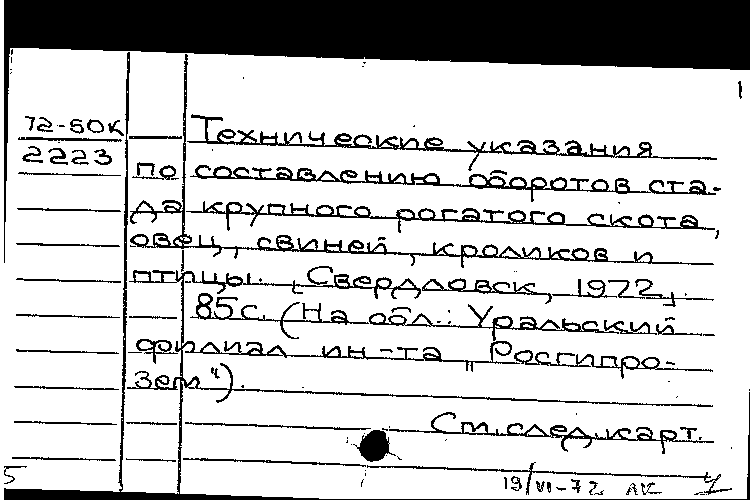 1
72-50к
2223
Технические указания
по составлению оборотов ста-
да крупного рогатого скота,
овец, свиней, кроликов и
птицы. [Свердловск, 1972].
85с. (На обл.: Уральский
филиал ин-та „Росгипро-
зем").
См.след.карт.
5
19/VI-72 АК